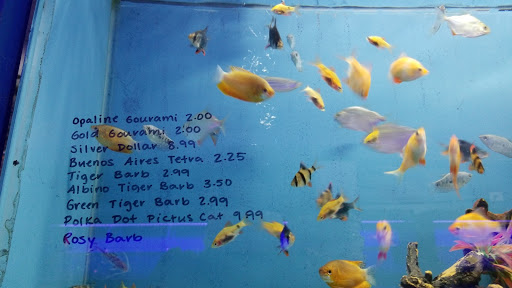 Opaline Gourami 2.00
Gold Gourami 2.00
Silver Dollar 8.99
Buenos Aires Tetra 2.25
Tiger Barb 2.99
Albino Tiger Barb 3.50
Green Tiger Barb 2.99
Polka Dot Pictus Cat 9.99
Rosy Barb